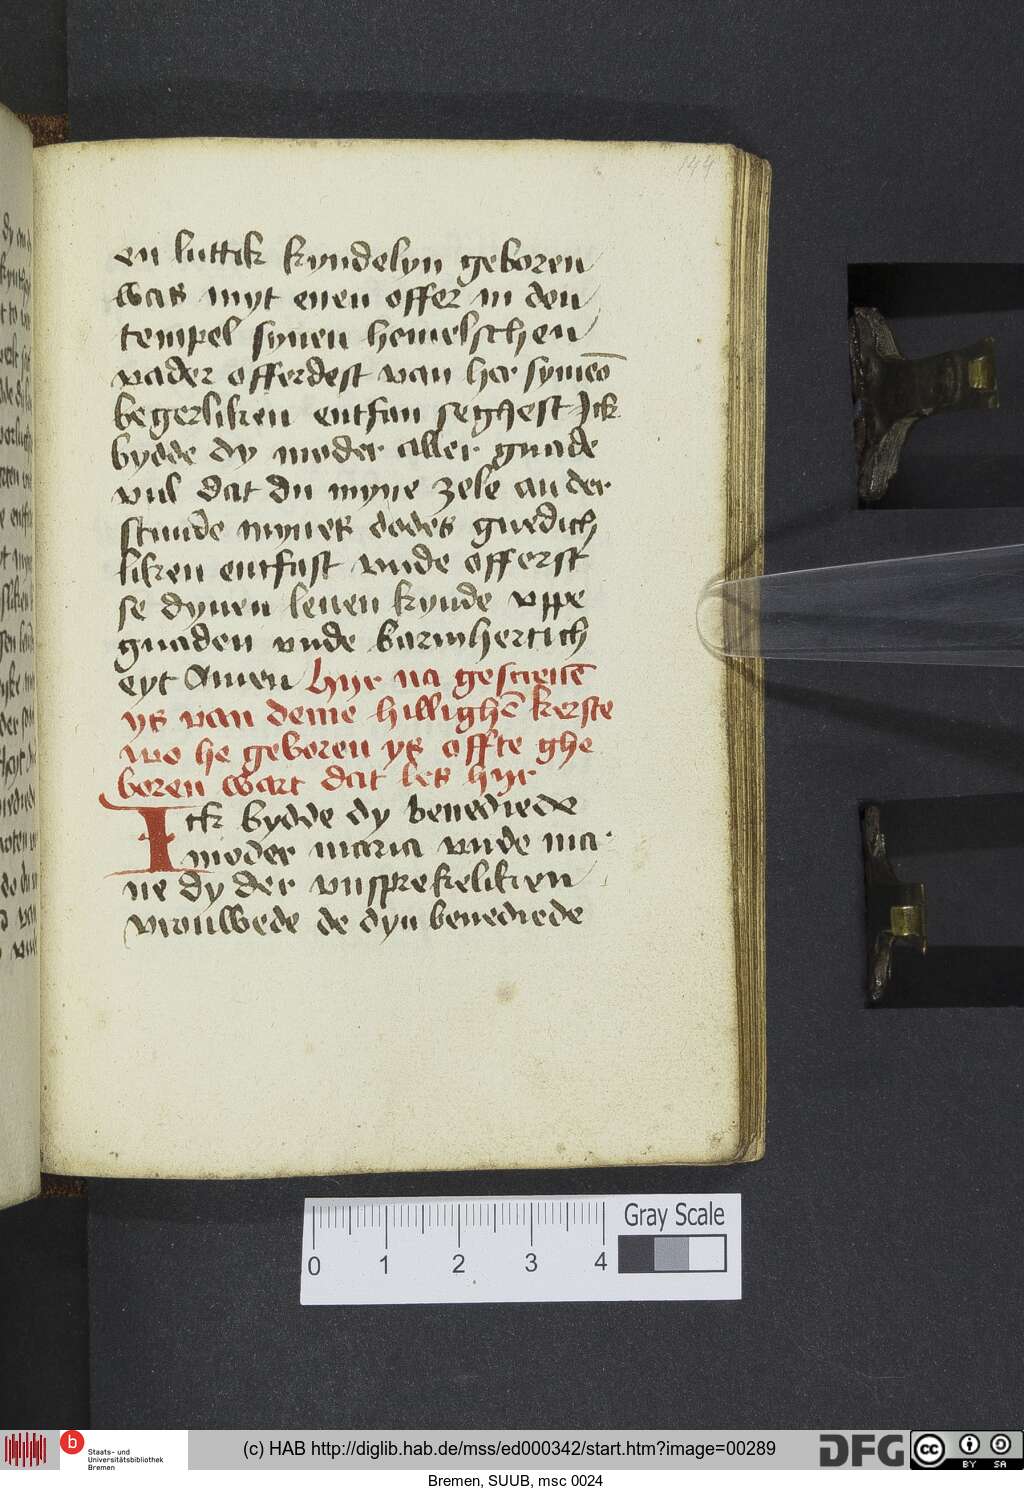 144
en luttik kyndelyn geboren
wars myt enen offer in den
tempel synen hemelschen
vader offerdest van her symeō
begerliken entfan seghest Ick
bydde dy moder aller gnade
vul dat du myne zele an der
stunde mynes dodes gnedich
liken entfast vnde offerst
se dynen leuen kynde vppe
gnaden vnde barmhertich
eyt Amen hyr na gescreuē
ys van deme hillighē kerste
wo he geboren ys offte ghe
boren wart dat les hyr
Ick bydde dy benediede
moder maria vnde ma
ne dy der vnsprekeliken
vrouwede de dyn benediede
0 1 2 3 4
Gray Scale
b
Staats- und
Universitätsbibliothek
Bremen
(c) HAB http://diglib.hab.de/mss/ed000342/start.htm?image=00289
DFG
cc BY SA
Bremen, SUUB, msc 0024